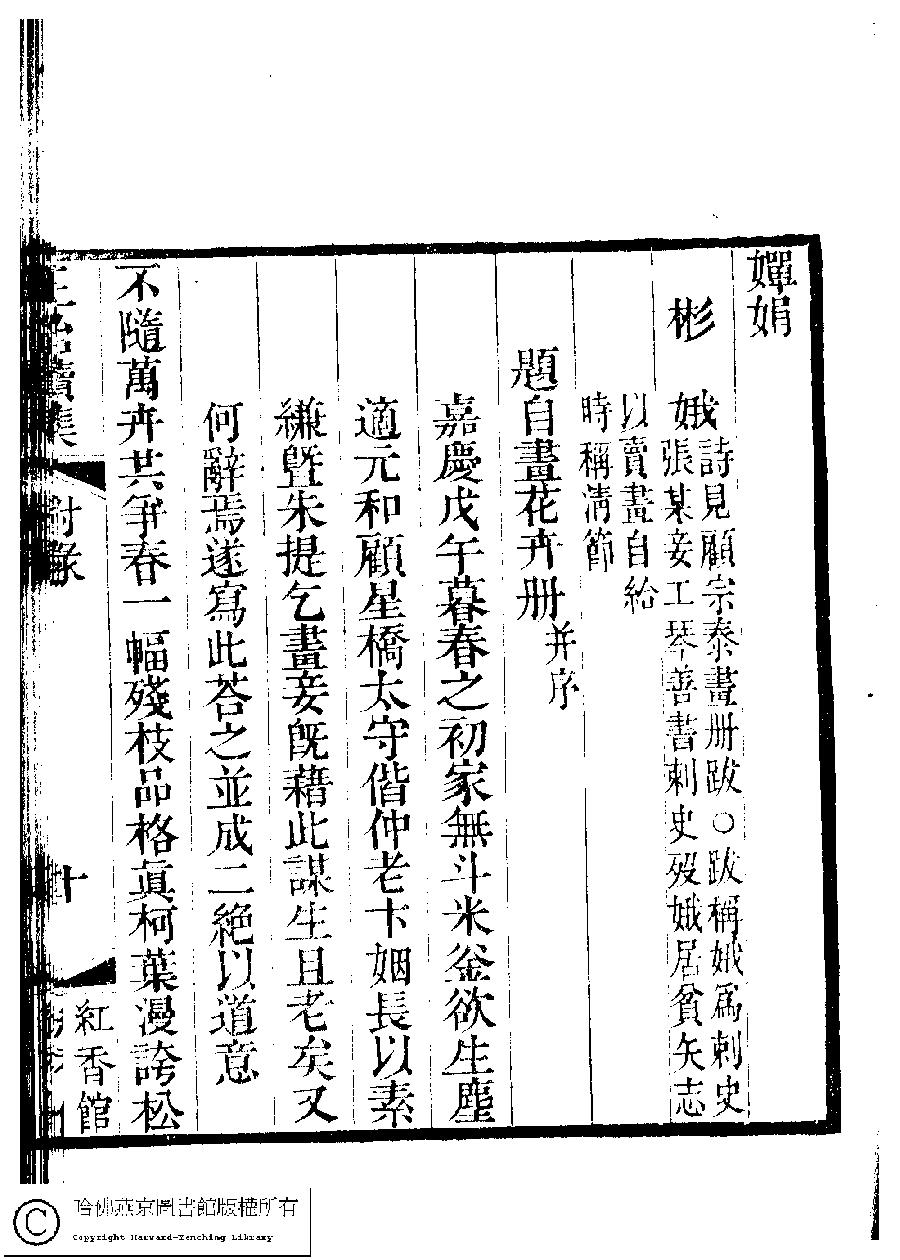 嬋娟
彬　娥
詩見顧宗泰畫册跋○跋稱娥爲刺史
張某妾工琴善書刺史歿娥居貧矢志
以賣畫自給
時稱淸節
題自畫花卉册并序
嘉慶戊午暮春之初家無斗米釜欲生塵
適元和顧星橋太守偕仲老卞姻長以素
縑曁朱提乞畫妾旣藉此謀生且老矣又
何辭焉遂寫此荅之並成二絕以道意
不隨萬卉共爭春一幅殘枝品格眞柯葉漫誇松
續集
附錄
十
紅香館
哈佛燕京圖書館版權所有
Copyright Harvard-Yenching Library